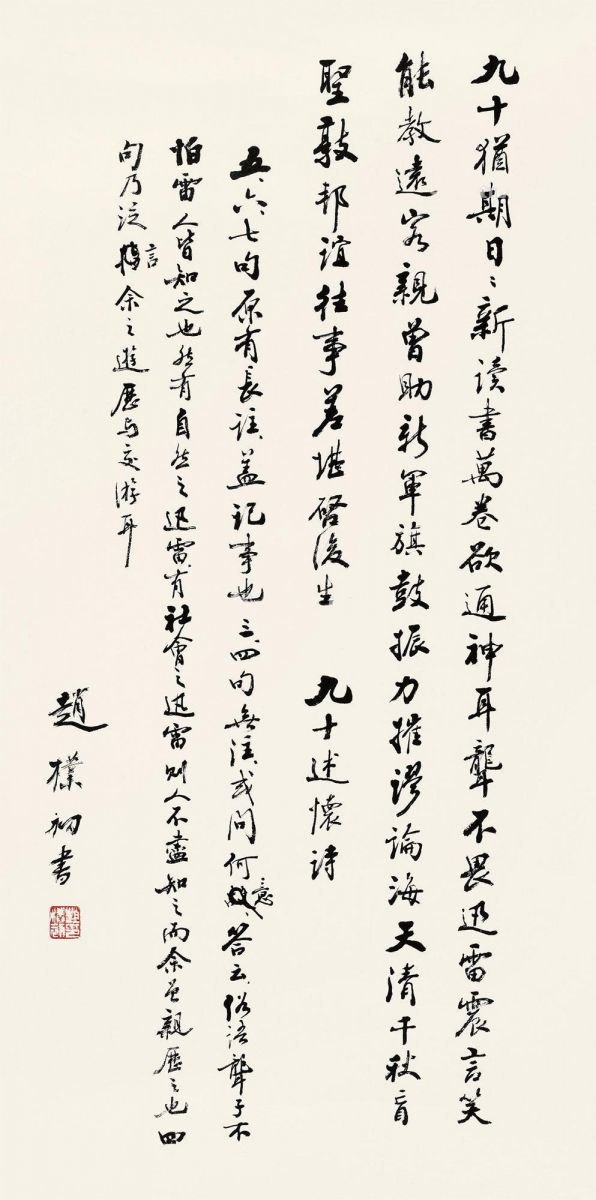 九十猶期日日新读書萬卷欲通神耳聾不畏迅雷震言笑
能教遠客親曾助新軍旗鼓振力摧謬論海天清千秋盲
聖敦邦誼往事差堪啓後生　九十述懷诗
五、六、七句原有長註、蓋记事也三、四句無注、或問何意、答云、俗语聾子不
怕雷人皆知之也然有自然之迅雷、有社會之迅雷则人不盡知之而余曾親歷之也四
句乃泛言余之遊歷与交游耳
趙樸初書